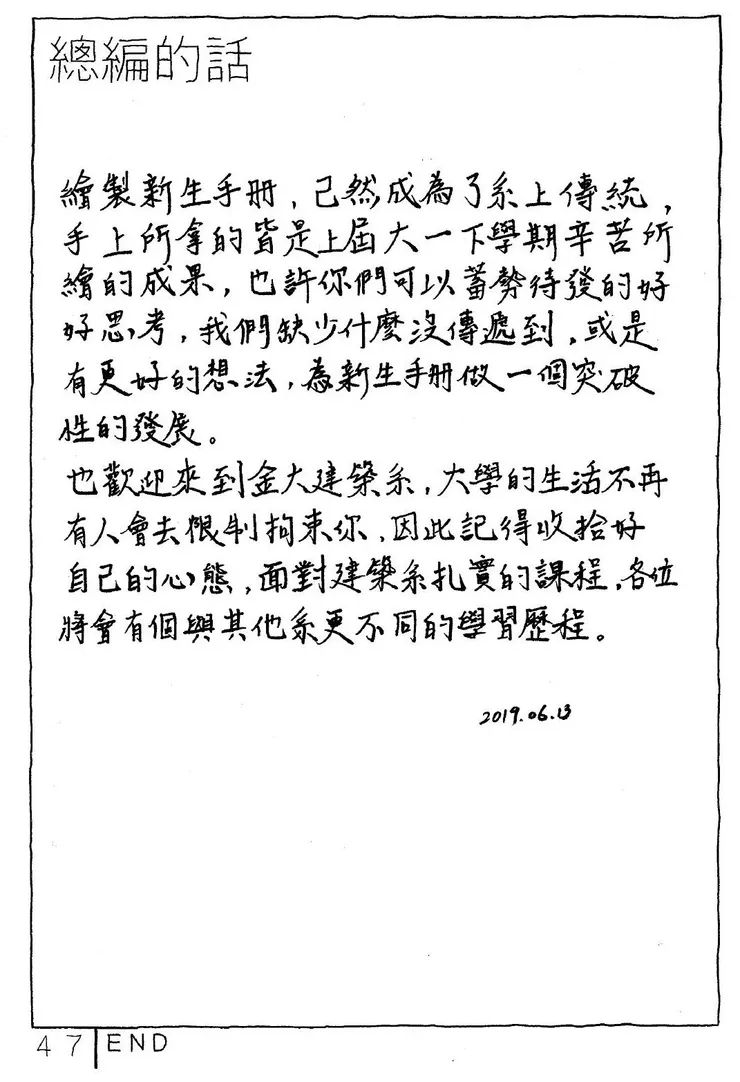 總編的話
繪製新生手冊，已然成為了系上傳統，
手上所拿的皆是上屆大一下學期辛苦所
繪的成果，也許你們可以蓄勢待發的好
好思考，我們缺少什麼沒傳遞到，或是
有更好的想法，為新生手冊做一個突破
性的發展。
也歡迎來到金大建築系，大學的生活不再
有人會去限制拘束你，因此記得收拾好
自己的心態，面對建築系扎實的課程，各位
將會有個與其他系更不同的學習歷程。
2019.06.13
47 END